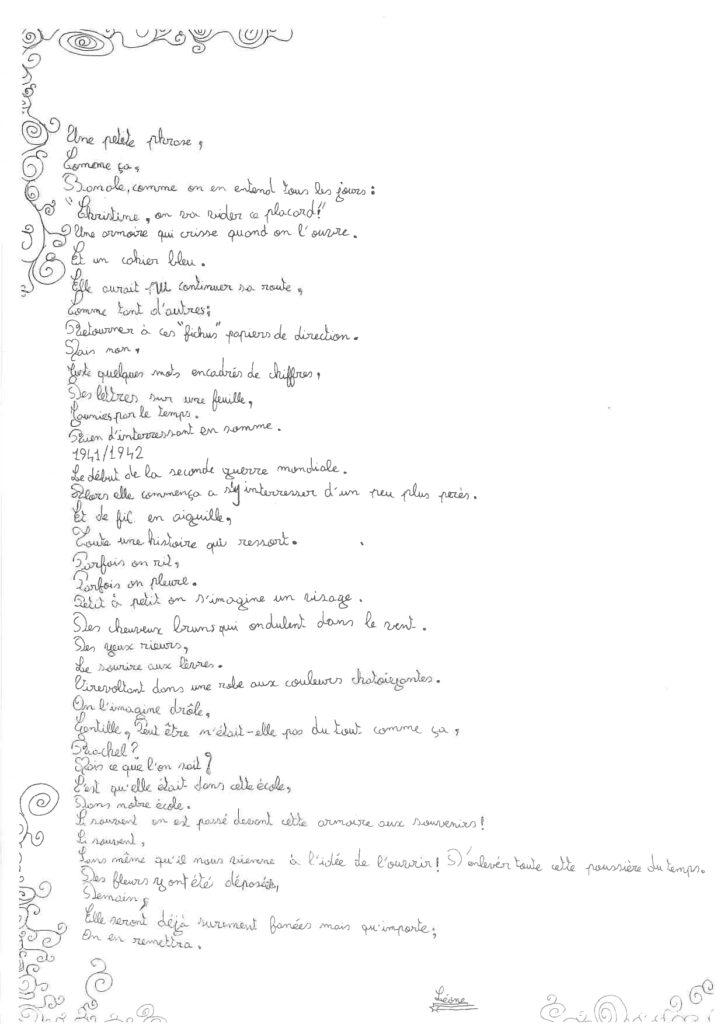 Une petite phrase,
Comme ça,
Banale, comme on en entend tous les jours :
"Christine, on va vider ce placard!"
Une armoire qui crisse quand on l'ouvre.
Et un cahier bleu.
Elle aurait pu continuer sa route,
Comme tant d'autres;
Retourner à ces "fichus" papiers de direction.
Mais non,
Juste quelques mots encadrés de chiffres,
Des lettres sur une feuille,
Jaunies par le temps.
Rien d'interressant en somme.
1941/1942
Le début de la seconde guerre mondiale.
Alors elle commença a s'y interresser d'un peu plus perès.
Et de fil en aiguille,
Toute une histoire qui ressort.
Parfois on rit,
Parfois on pleure.
Petit à petit on s'imagine un visage.
Des cheuveux bruns qui ondulent dans le vent.
Des yeux rieurs,
Le sourire aux lèvres.
Virevoltant dans une robe aux couleurs chatoiyantes.
On l'imagine drôle,
Gentille, Peut être n'était-elle pas du tout comme ça,
Rachel?
Mais ce que l'on sait?
C'est qu'elle était dans cette école,
Dans notre école.
Si souvent on est passé devant cette armoire aux souvenirs!
Si souvent,
Sans même qu'il nous vienne à l'idée de l'ouvrir! D'enlever toute cette poussière du temps.
Des fleurs y ont été déposées,
Demain,
Elle seront déjà surement fanées mais qu'importe;
On en remettra.
Léane